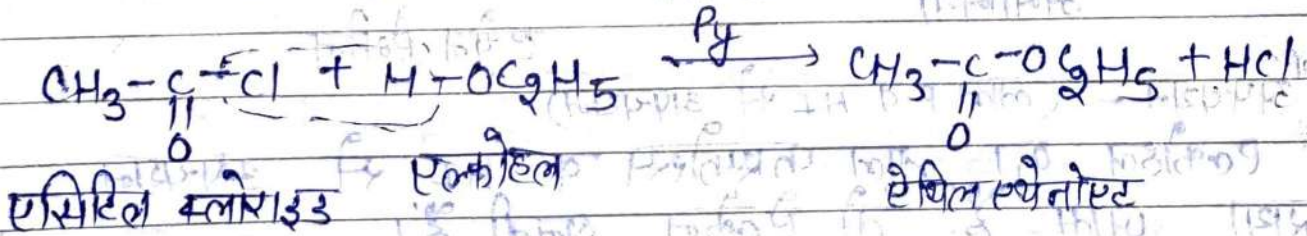 Py
CH3-C-Cl + H-OC2H5 → CH3-C-OC2H5 + HCl
|| ||
O O
एसिटिल क्लोराइड एल्कोहल ऐथिल एथेनोएट